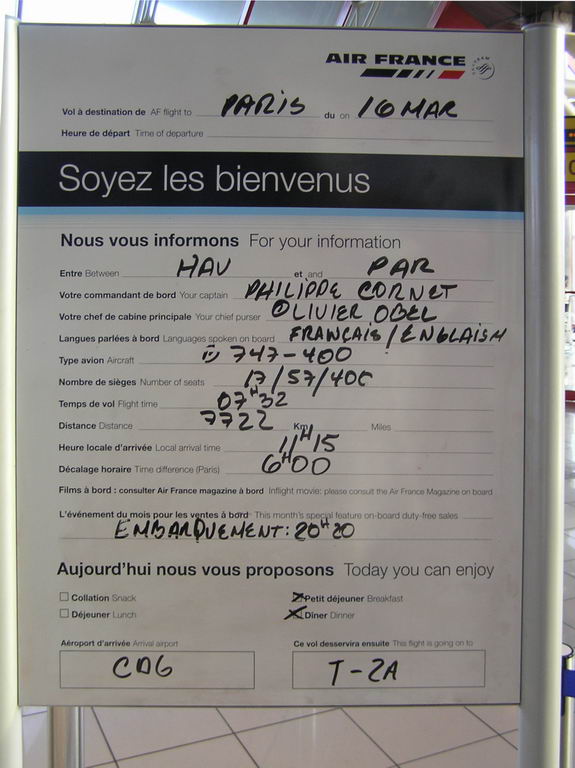 AIR FRANCE
Vol à destination de AF flight to PARIS du on 16 MAR
Heure de départ Time of departure
Soyez les bienvenus
Nous vous informons For your information
Entre Between HAV et and PAR
Votre commandant de bord Your captain PHILIPPE CORNET
Votre chef de cabine principale Your chief purser OLIVIER OBEL
Langues parlées à bord Languages spoken on board FRANÇAIS/ENGLAISH
Type avion Aircraft 747-400
Nombre de sièges Number of seats 17/57/400
Temps de vol Flight time 07H32
Distance Distance 7722 Km Miles
Heure locale d'arrivée Local arrival time 11H15
Décalage horaire Time difference (Paris) 6H00
Films à bord : consulter Air France magazine à bord Inflight movie: please consult the Air France Magazine on board
L'événement du mois pour les ventes à bord This month's special feature on-board duty-free sales
EMBARQUEMENT: 20H20
Aujourd'hui nous vous proposons Today you can enjoy
Collation Snack Petit déjeuner Breakfast
Déjeuner Lunch Dîner Dinner
Aéroport d'arrivée Arrival airport Ce vol desservira ensuite This flight is going on to
CDG T-2A